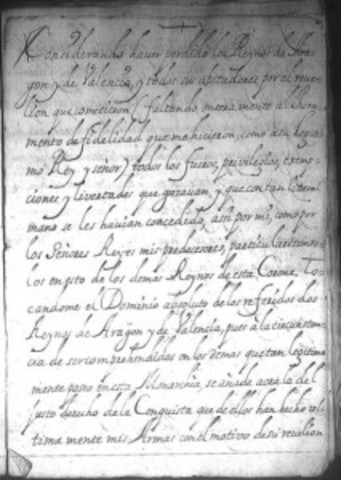 Considerando haver perdido los Reynos de Ara
gon y de Valencia, y todos sus avitadores por el reve
lion que cometieron (faltando enteramente al Jura
mento de fidelidad que me hicieron, como a su legiti
mo Rey y señor) todos los fueros, privilegios, exemp
ciones y livertades que gozavan, y que con tan liveral
mano se les havian concedido, assi por mi, como por
los Señores Reyes mis predecesores, particularizando
los en esto de los demas Reynos de esta Corona, To
candome el Dominio absoluto de los referidos dos
Reynos de Aragon y de Valencia, pues a la circunstan
cia de ser comprehendidos en los demas que tan legitima
mente poseo en esta Monarchia, se añade aora la del
justo derecho de la Conquista que de ellos han hecho vl
tima mente mis Armas con el motivo de su revelion